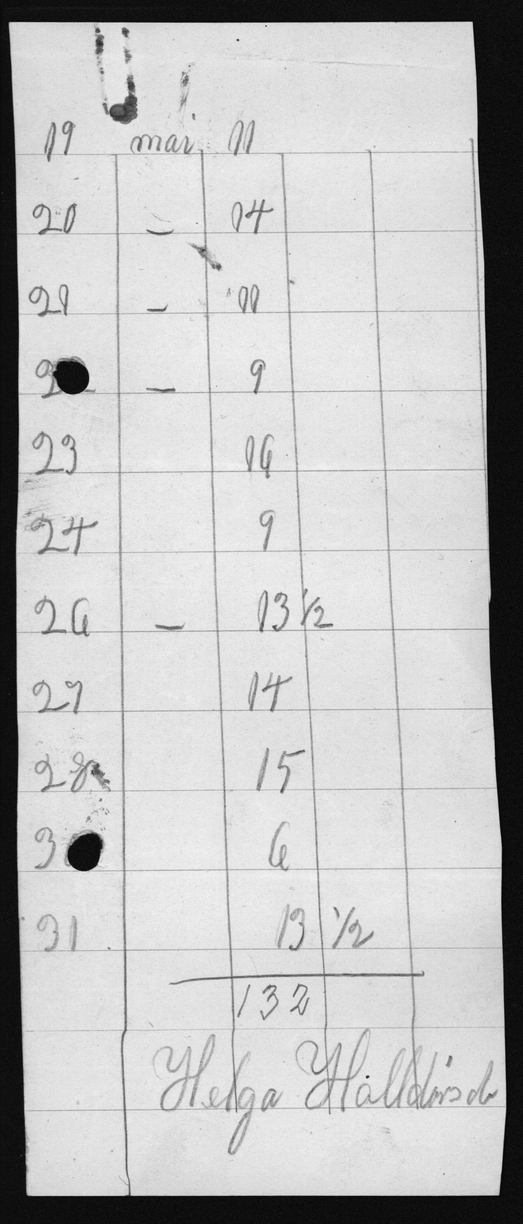 19 mai 11
20 — 14
21 — 11
2 — 9
23 16
24 9
26 — 13 1/2
27 14
28 15
3 6
31 13 1/2
132
Helga Halldórsd